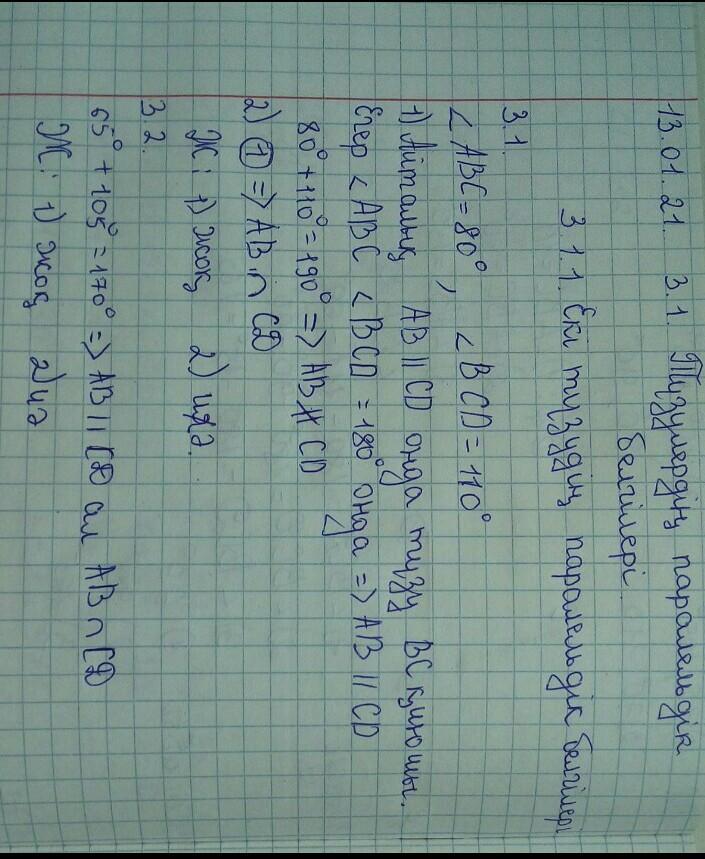 13.01.21. 3.1. Түзулердің паралельдік
белгілері.
3.1.1. Екі түзудің паралельдік белгілері
3.1.
< ABC = 80°, < BCD = 110°
1) Айталық AB || CD онда түзу BC қиюшы.
Егер < ABC < BCD = 180° онда => AB || CD
80° + 110° = 190° => AB ∦ CD
2) ① => AB ∩ CD
Ж: 1) жоқ 2) иә.
3.2.
65° + 105° = 170° => AB || CD ал AB ∩ CD
Ж: 1) жоқ 2) иә